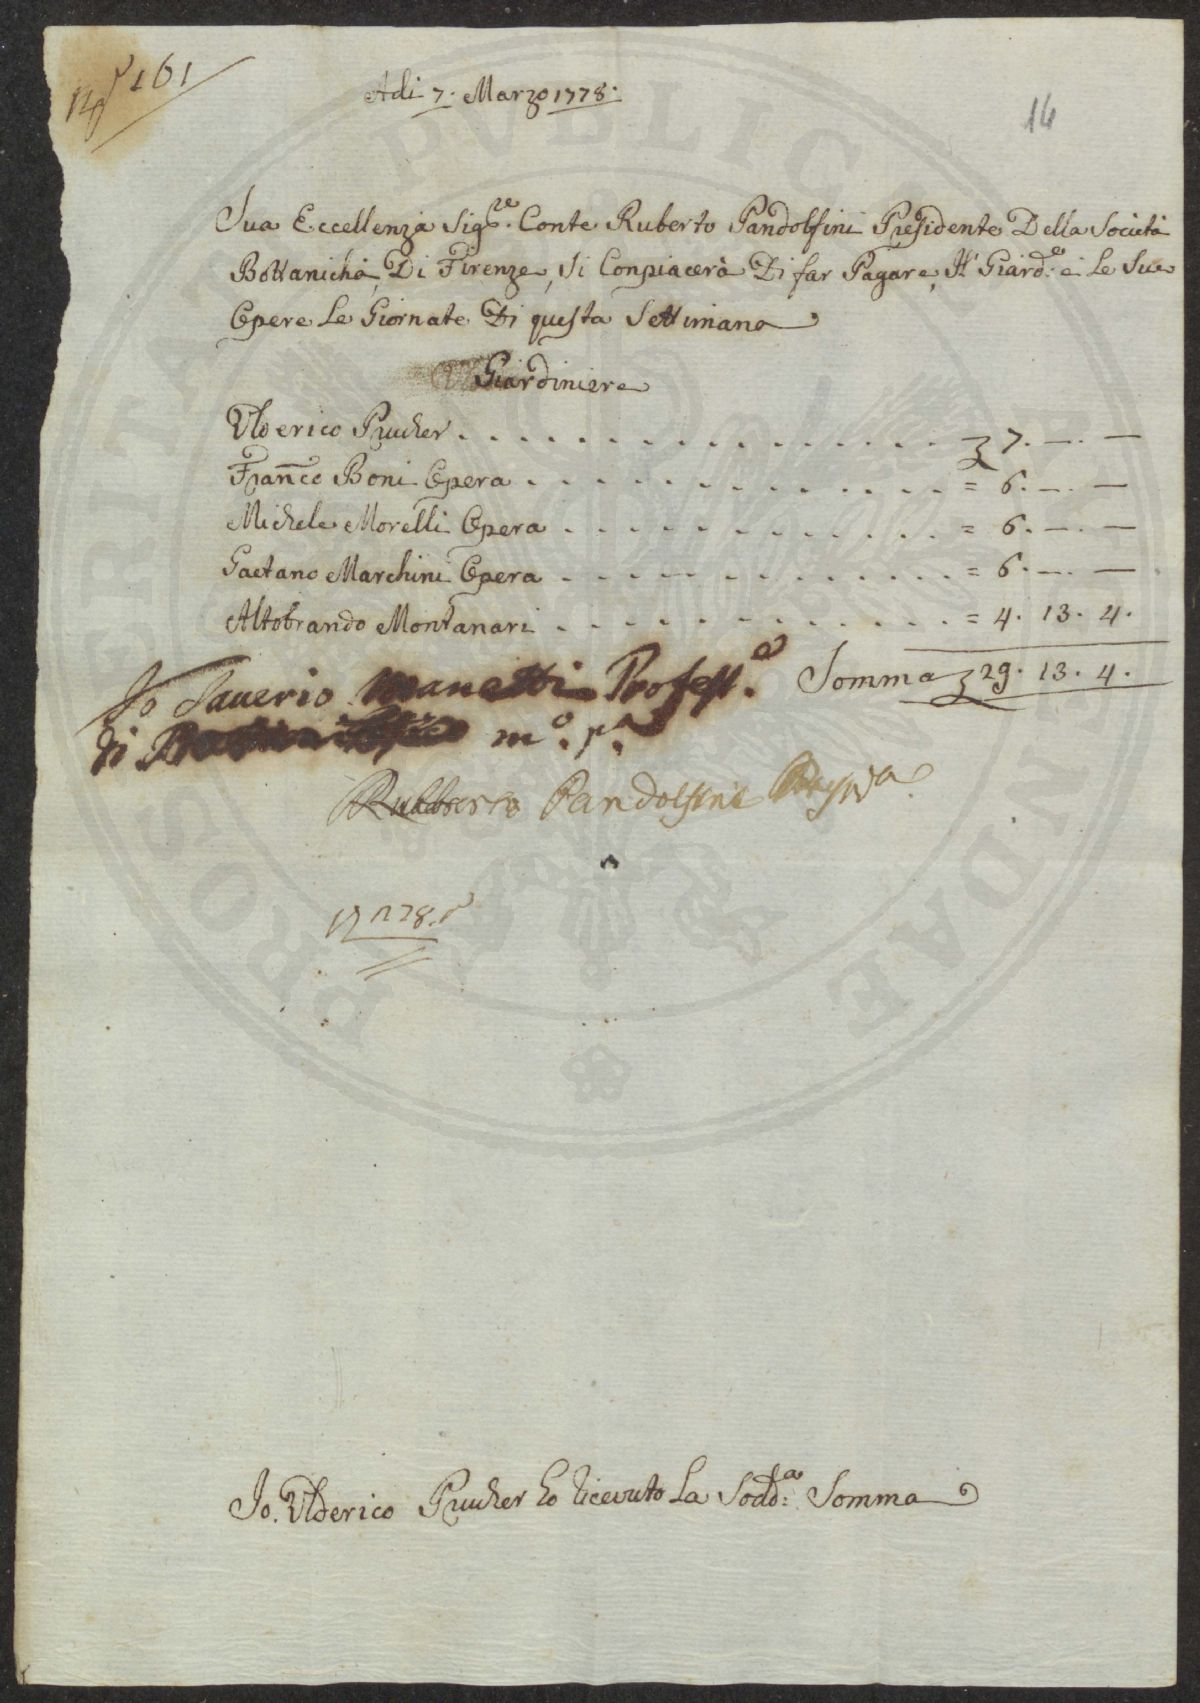 161
Adi 7. Marzo 1778.
14
Sua Eccellenza Sig.re Conte Ruberto Pandolfini Presidente Della Società
Bottanicha, Di Firenze, si Conpiacerà Di far Pagare, Il Giard.e e Le Sue
Opere Le Giornate Di questa Settimana
Giardiniere
Ulderico Prucker . . . . . . . . . . . . . . . . . 7. — . —
Fran̄co Boni Opera . . . . . . . . . . . . . . = 6. — . —
Michele Morelli Opera . . . . . . . . . . . . . = 6. — . —
Gaetano Marchini Opera . . . . . . . . . . . . . = 6. — . —
Altobrando Montanari . . . . . . . . . . . . . = 4. 13. 4.
Somma 29. 13. 4.
Io Saverio Manetti Profess.e
di m.o p.a
Rubberto Pandolfini
Io. Ulderico Prucker ho ricevuto La Sodd.a Somma